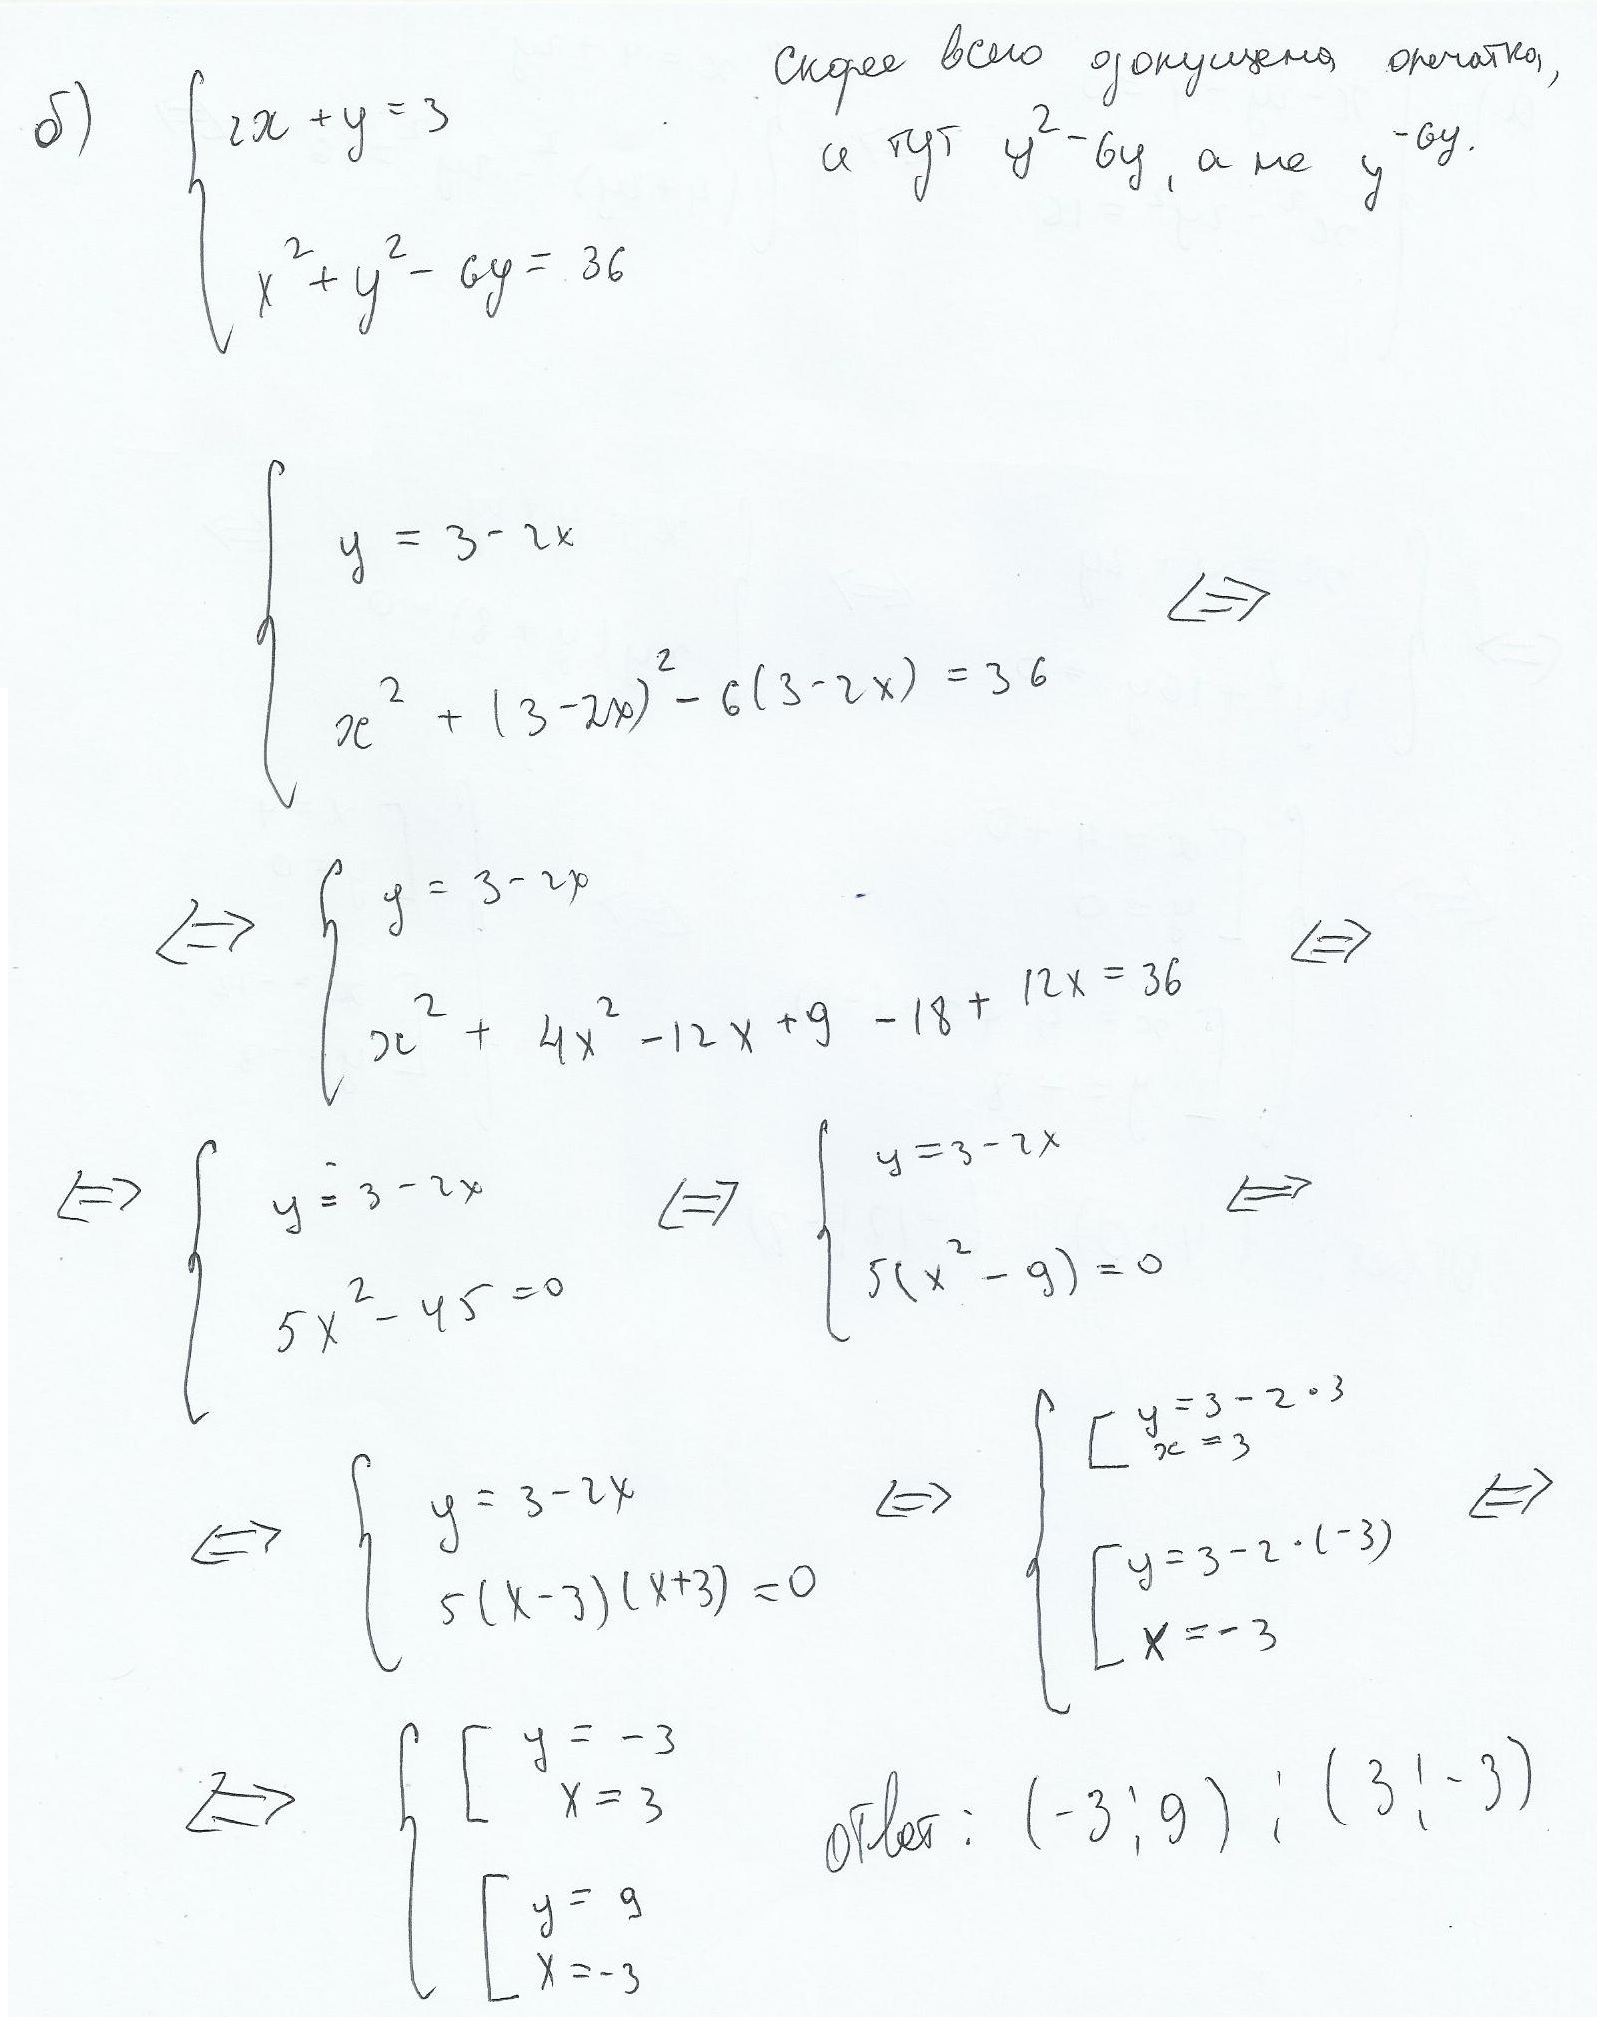 Скорее всего допущена опечатка,
и тут y² - 6y, а не y^(-6y).
б) { 2x + y = 3
x² + y² - 6y = 36
{ y = 3 - 2x
x² + (3 - 2x)² - 6(3 - 2x) = 36 <=>
<=> { y = 3 - 2x
x² + 4x² - 12x + 9 - 18 + 12x = 36 <=>
<=> { y = 3 - 2x
5x² - 45 = 0
<=> { y = 3 - 2x
5(x² - 9) = 0 <=>
<=> { y = 3 - 2x
5(x - 3)(x + 3) = 0
<=> { [ y = 3 - 2 · 3
x = 3
[ y = 3 - 2 · (-3)
x = -3 <=>
<=> { [ y = -3
x = 3
[ y = 9
x = -3
ответ: (-3; 9); (3; -3)